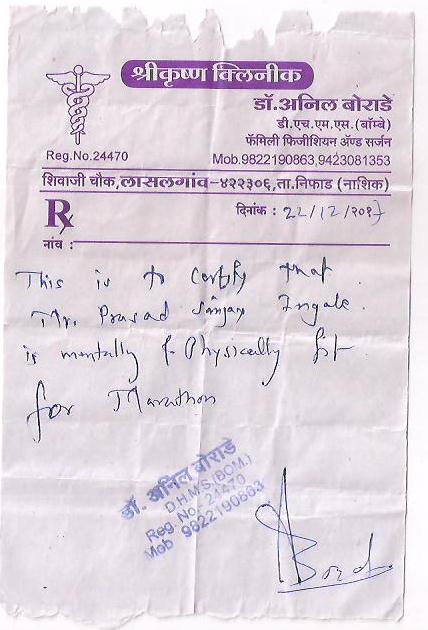 श्रीकृष्ण क्लिनीक
डॉ.अनिल बोराडे
डी.एच.एम.एस.(बॉम्बे)
फॅमिली फिजीशियन अ‍ॅण्ड सर्जन
Reg.No.24470
Mob.9822190863,9423081353
शिवाजी चौक,लासलगांव-४२२३०६,ता.निफाड (नाशिक)
Rx
दिनांक : 22/12/२०१7
नांव :
This is to certify that
Mr. Prasad Sanjay Ingale.
is mentally & Physically fit
for Marathon
डॉ. अनिल बोराडे
D.H.M.S.(BOM.)
Reg. No. 24470
Mob 9822190863